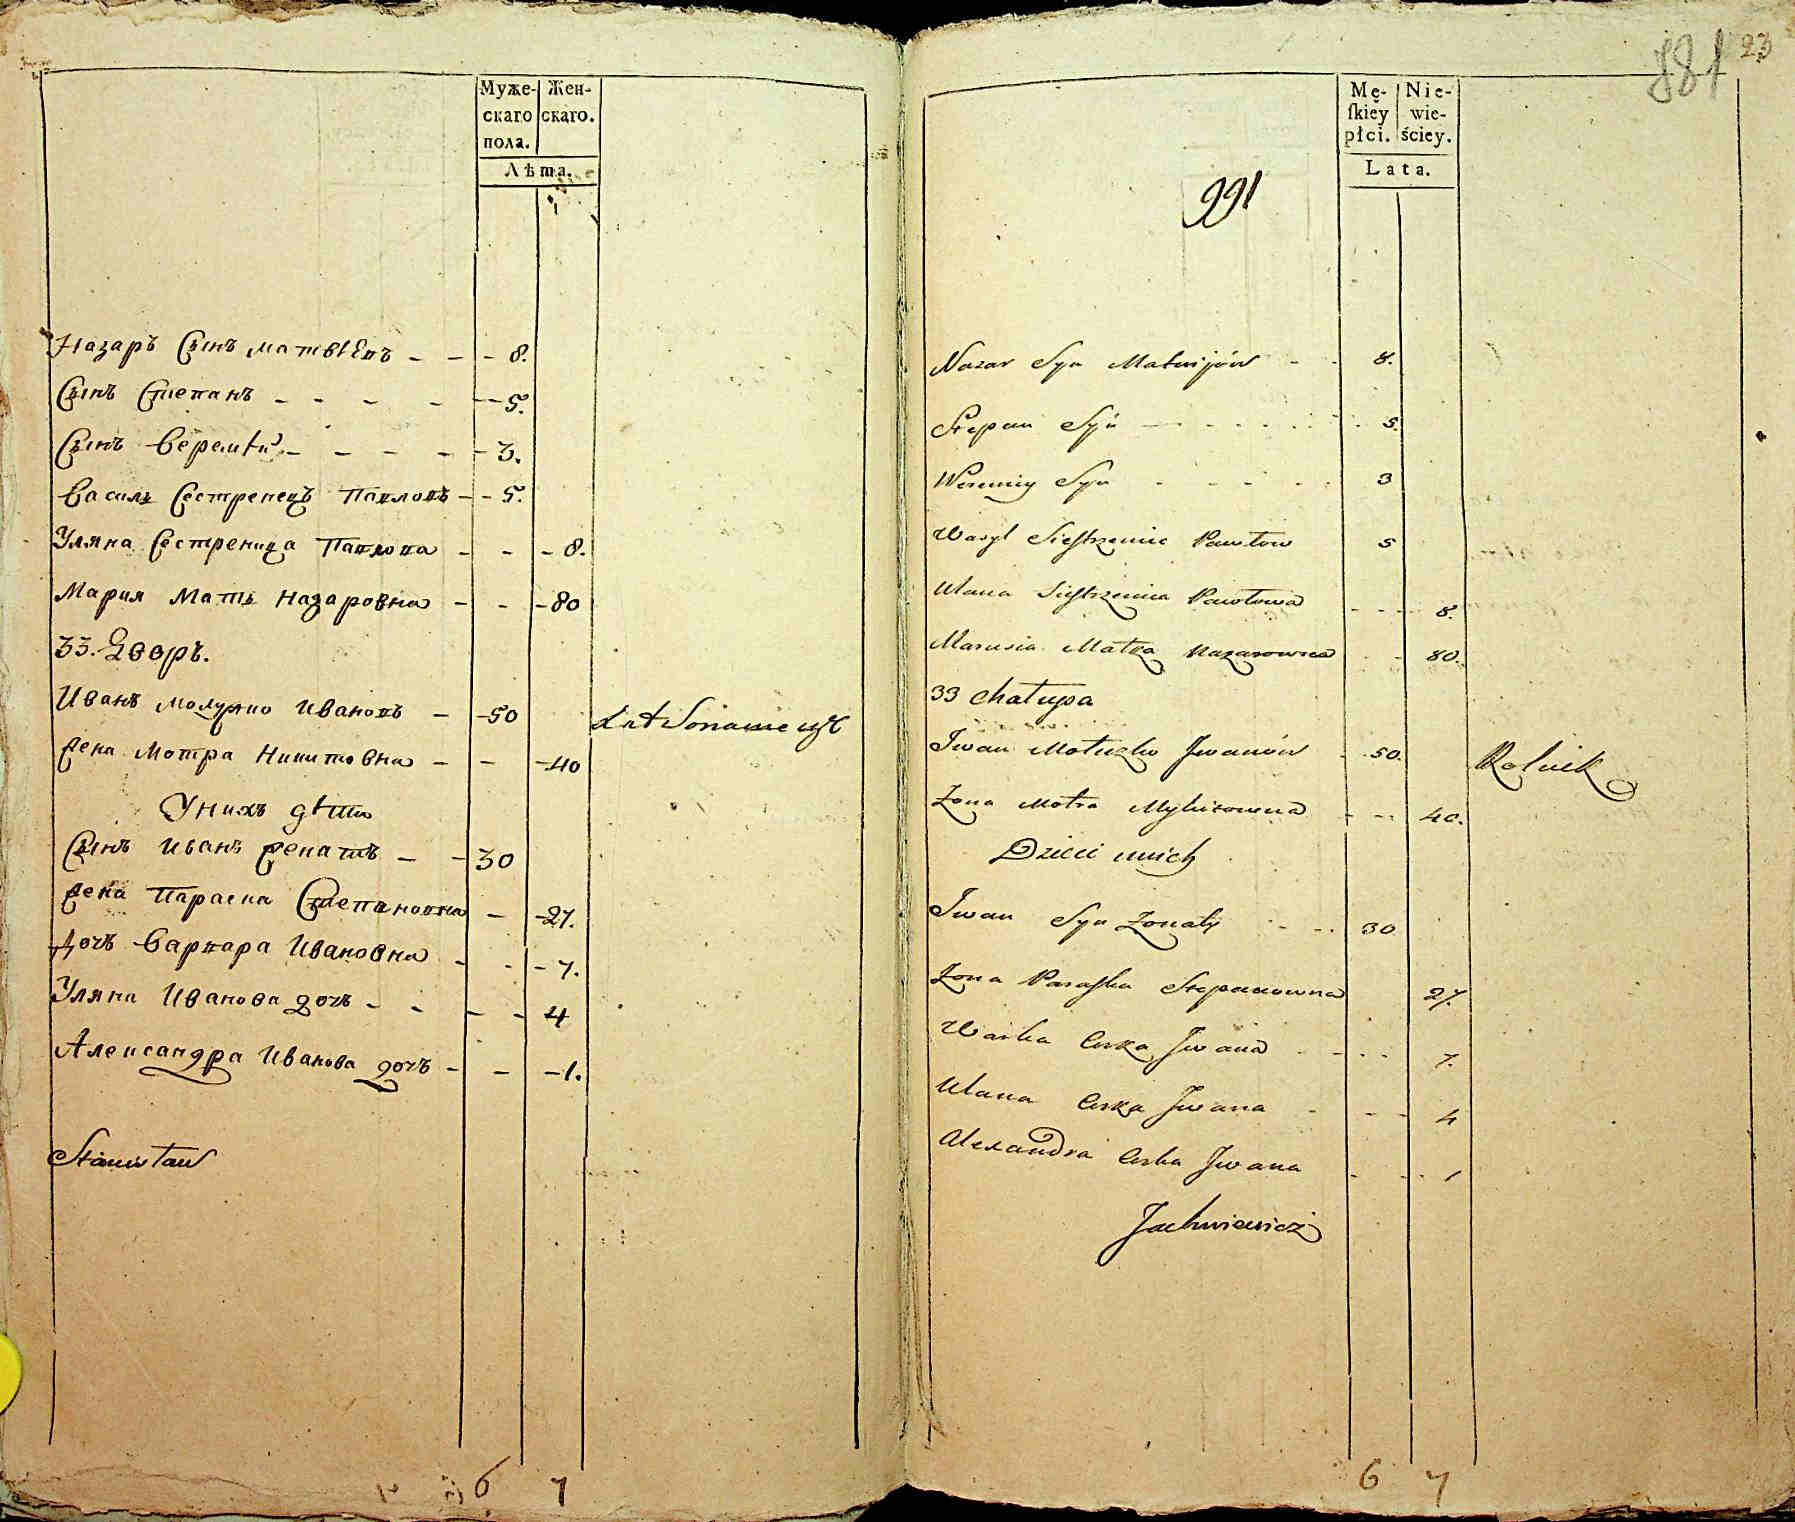 Муже- Жен-
скаго скаго.
пола.
Лѣта.
Назаръ Сынъ матвѣевъ - - - 8.
Сынъ Степанъ - - - - - - 5.
Сынъ Веремѣй - - - - - 3.
Василь Сестренецъ Павловъ - - 5.
Уляна Сестреница Павлова - - - 8.
Мария Мать Назаровна - - - 80
33. Дворъ.
Иванъ Ивановъ - - 50
Жена Мотра Никитовна - - - 40
У нихъ дѣти
Сынъ Иванъ женатъ - - 30
Жена Параска Степановна - - 27.
Дочъ Варвара Ивановна - - - 7.
Уляна Иванова дочъ - - - - 4
Александра Иванова дочъ - - - 1.
Stanisław
6 7
881 23
Mę- Nie-
ſkiéy wie-
płci. ściey.
Lata.
991
Nazar Syn Matwijów - - 8.
Stepan Syn - - - - 5.
Weremiy Syn - - - - 3
Wasyl Siestrzenic Pawłow 5
Ulana Siestrzenica Pawłowa - - - 8.
Marusia Matka Nazarowna - - 80.
33 Chałupa
Iwan Iwanów - 50. Rolnik
Żona Motra Mykitowna - - - 40.
Dzieci unich
Iwan Syn Żonaty - - - 30
Żona Paraska Stepanowna 27.
Warka Corka Iwana - - - - 7.
Ulana Corka Iwana - - - 4
Alexandra Corka Iwana - - - 1
Jachniewicz
6 7